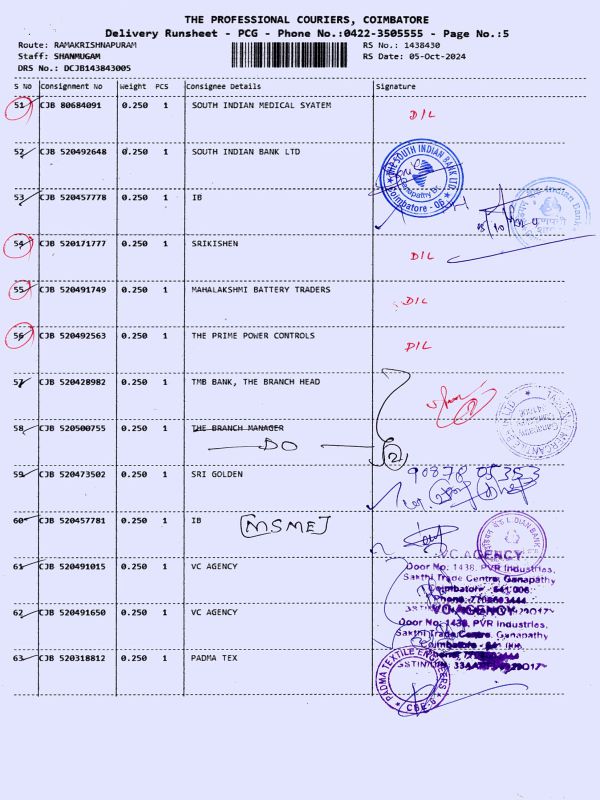 THE PROFESSIONAL COURIERS, COIMBATORE
Delivery Runsheet - PCG - Phone No.:0422-3505555 - Page No.:5
Route: RAMAKRISHNAPURAM RS No.: 1438430
Staff: SHANMUGAM RS Date: 05-Oct-2024
DRS No.: DCJB143843005
S No Consignment No Weight PCS Consignee Details Signature
51 CJB 80684091 0.250 1 SOUTH INDIAN MEDICAL SYATEM D/L
52 CJB 520492648 0.250 1 SOUTH INDIAN BANK LTD
THE SOUTH INDIAN BANK LTD.
Ganapathy Br.
Coimbatore - 06
53 CJB 520457778 0.250 1 IB
Indian Bank
54 CJB 520171777 0.250 1 SRIKISHEN D/L
55 CJB 520491749 0.250 1 MAHALAKSHMI BATTERY TRADERS D/L
56 CJB 520492563 0.250 1 THE PRIME POWER CONTROLS D/L
57 CJB 520428982 0.250 1 TMB BANK, THE BRANCH HEAD
58 CJB 520500755 0.250 1 THE BRANCH MANAGER
DO 2
59 CJB 520473502 0.250 1 SRI GOLDEN 90878 05353
60 CJB 520457781 0.250 1 IB [MSME]
INDIAN BANK
VC AGENCY
61 CJB 520491015 0.250 1 VC AGENCY Door No: 1438, PVR Industries,
Sakthi Trade Centre, Ganapathy
Coimbatore - 641 006.
62 CJB 520491650 0.250 1 VC AGENCY VC AGENCY
Door No: 1438, PVR Industries,
Sakthi Trade Centre, Ganapathy
Coimbatore - 641 006.
63 CJB 520318812 0.250 1 PADMA TEX
PADMA TEXTILE ENGINEERS
CBE-6